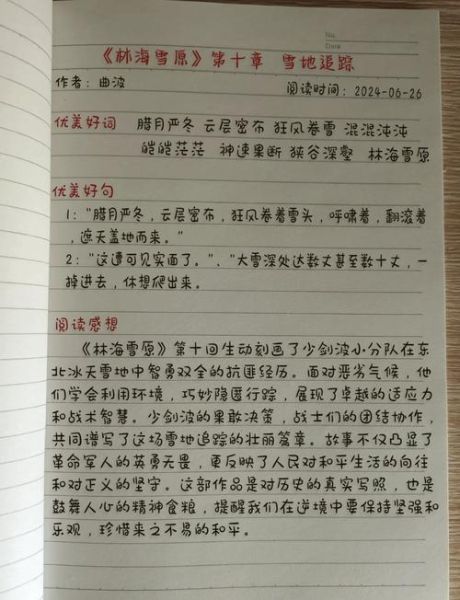 No.
Date
《林海雪原》第十章 雪地追踪
作者：曲波 阅读时间：2024-06-26
优美好词 腊月严冬 云层密布 狂风卷雪 混混沌沌
皑皑茫茫 神速果断 狭谷深壑 林海雪原
优美好句
1："腊月严冬，云层密布，狂风卷着雪头，呼啸着，翻滚着
，遮天盖地而来。"
2："这遭可见实面了。"、"大雪深处达数丈甚至数十丈，一
掉进去，休想爬出来。
阅读感想
《林海雪原》第十回生动刻画了少剑波小分队在东
北冰天雪地中智勇双全的抗匪经历。面对恶劣气候，他
们学会利用环境，巧妙隐匿行踪，展现了卓越的适应力
和战术智慧。少剑波的果敢决策，战士们的团结协作，
共同谱写了这场雪地追踪的壮丽篇章。故事不仅凸显了
革命军人的英勇无畏，更反映了人民对和平生活的向往
和对正义的坚守。这部作品是对历史的真实写照，也是
鼓舞人心的精神食粮，提醒我们在逆境中要保持坚强和
乐观，珍惜来之不易的和平。